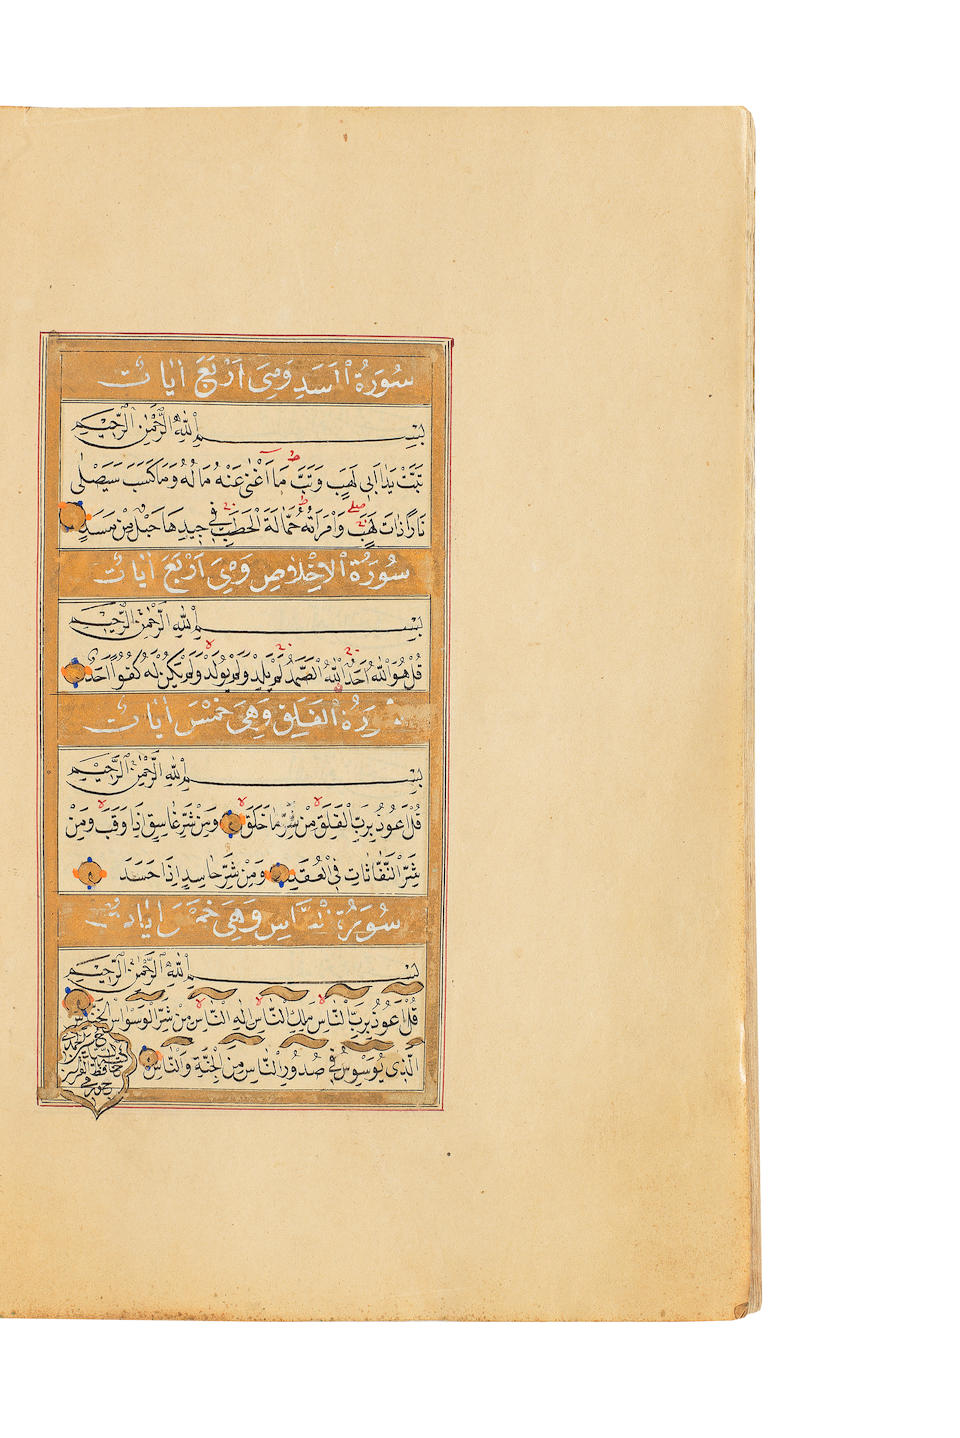 سُورَةُ الْمَسَدِ وَهِىَ اَرْبَعَ اٰيَات
بِسْمِ اللّٰهِ الرَّحْمٰنِ الرَّحِيمِ
تَبَّتْ يَدَا اَبٖى لَهَبٍ وَتَبَّ مَا اَغْنٰى عَنْهُ مَالُهُ وَمَا كَسَبَ سَيَصْلٰى
نَارًا ذَاتَ لَهَبٍ وَامْرَاَتُهُ حَمَّالَةَ الْحَطَبِ فٖى جٖيدِهَا حَبْلٌ مِنْ مَسَدٍ
سُورَةُ الْاِخْلَاصِ وَهِىَ اَرْبَعَ اٰيَات
بِسْمِ اللّٰهِ الرَّحْمٰنِ الرَّحِيمِ
قُلْ هُوَ اللّٰهُ اَحَدٌ اَللّٰهُ الصَّمَدُ لَمْ يَلِدْ وَلَمْ يُولَدْ وَلَمْ يَكُنْ لَهُ كُفُوًا اَحَدٌ
رَةُ الْفَلَقِ وَهِىَ خَمْسَ اٰيَات
بِسْمِ اللّٰهِ الرَّحْمٰنِ الرَّحِيمِ
قُلْ اَعُوذُ بِرَبِّ الْفَلَقِ مِنْ شَرِّ مَا خَلَقَ وَمِنْ شَرِّ غَاسِقٍ اِذَا وَقَبَ وَمِنْ
شَرِّ النَّفَّاثَاتِ فِى الْعُقَدِ وَمِنْ شَرِّ حَاسِدٍ اِذَا حَسَدَ
سُورَةُ النَّاسِ وَهِىَ خَمْسَ اٰيَات
بِسْمِ اللّٰهِ الرَّحْمٰنِ الرَّحِيمِ
قُلْ اَعُوذُ بِرَبِّ النَّاسِ مَلِكِ النَّاسِ اِلٰهِ النَّاسِ مِنْ شَرِّ الْوَسْوَاسِ الْخَنَّاسِ
اَلَّذٖى يُوَسْوِسُ فٖى صُدُورِ النَّاسِ مِنَ الْجِنَّةِ وَالنَّاسِ